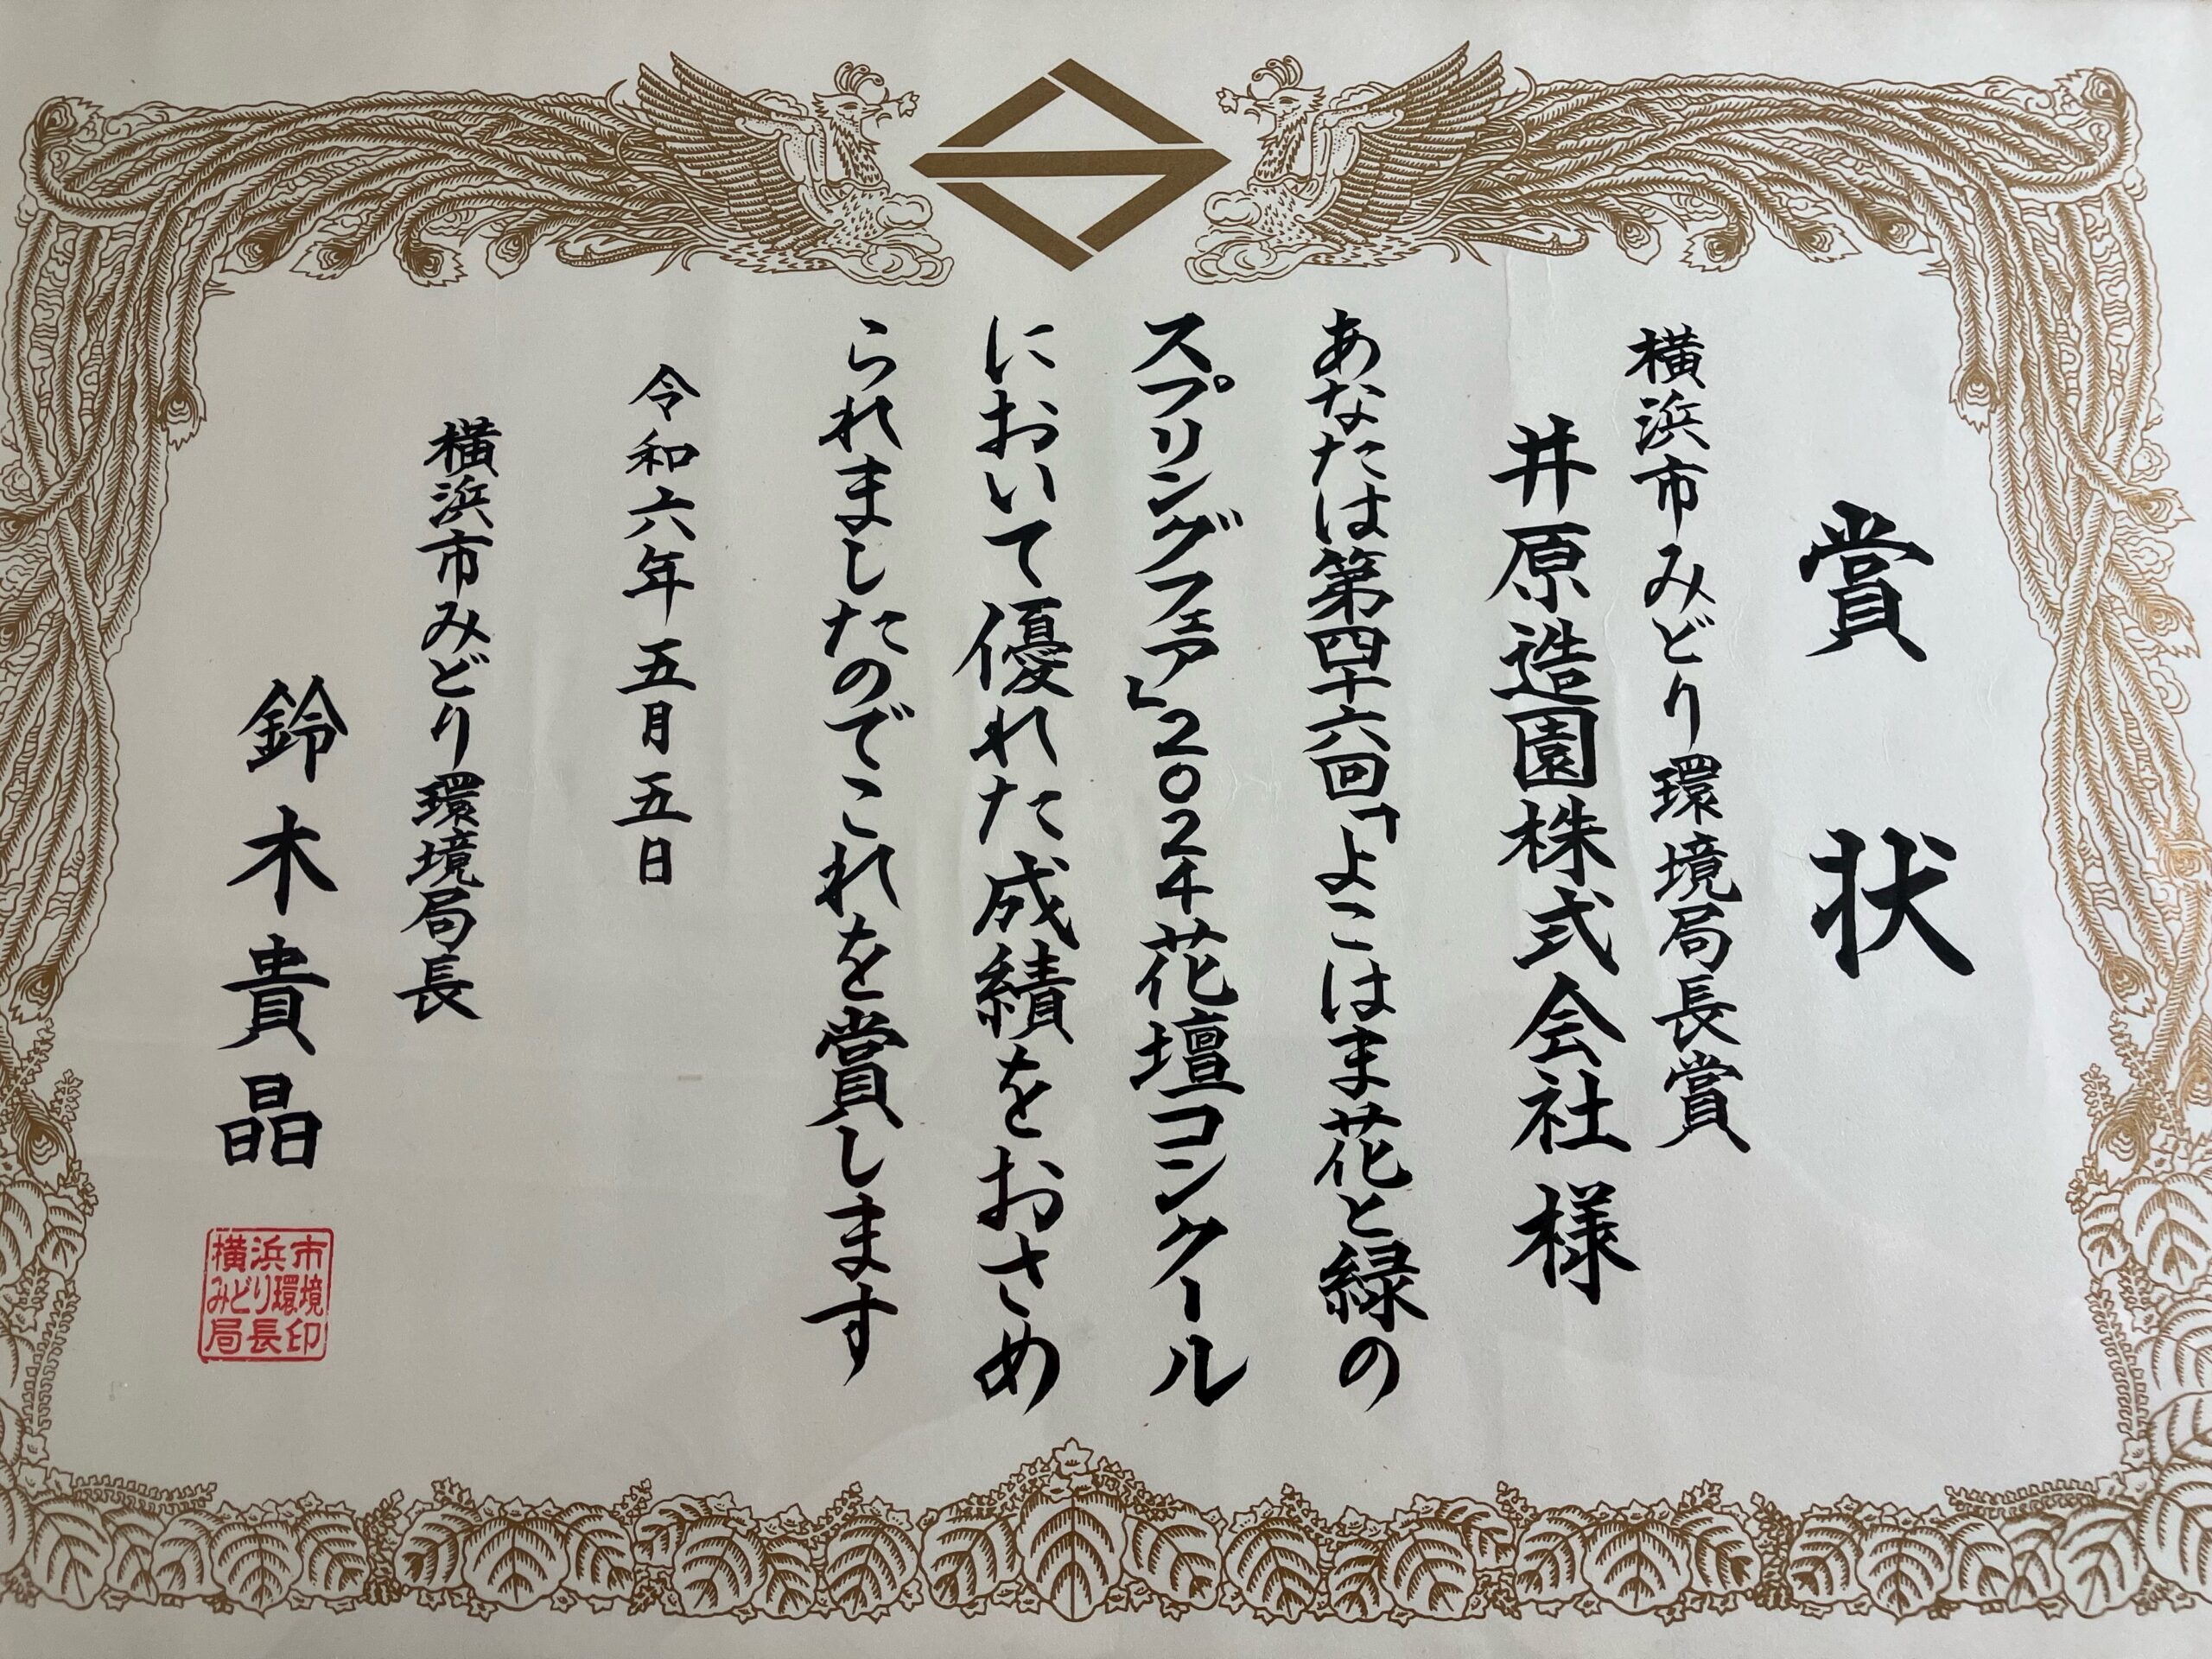 賞状
横浜市みどり環境局長賞
井原造園株式会社様
あなたは第四十六回「よこはま花と緑の
スプリングフェア」2024花壇コンクール
において優れた成績をおさめ
られましたのでこれを賞します
令和六年五月五日
横浜市みどり環境局長
鈴木貴晶
横浜市
みどり環境
局長印